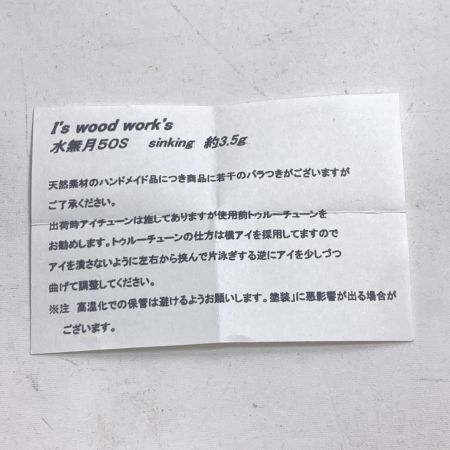 I's wood work's
水無月50S sinking 約3.5g
天然素材のハンドメイド品につき商品に若干のバラつきがございますが
ご了承ください。
出荷時アイチューンは施してありますが使用前トゥルーチューンを
お勧めします。トゥルーチューンの仕方は横アイを採用してますので
アイを潰さないように左右から挟んで片泳ぎする逆にアイを少しづつ
曲げて調整してください。
※注 高温化での保管は避けるようお願いします。塗装」に悪影響が出る場合が
ございます。